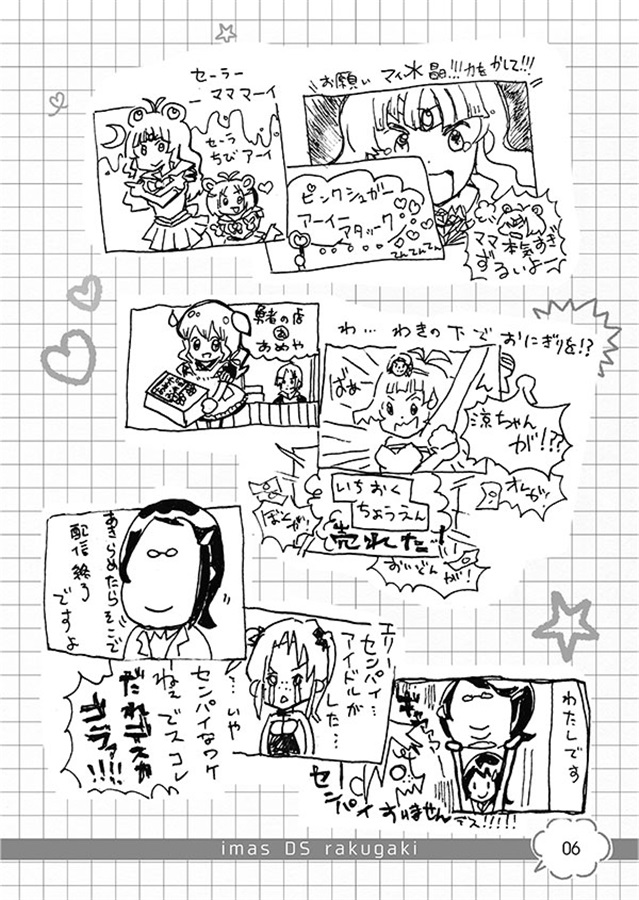 セーラー
ーママママーイ
セーラ
ちびアーイ
お願い マイ水晶!!!力をかして!!!
ピンクシュガ
アーイー
アタック
てんてんてん
ママ本気すぎ
ずるいよー
勇者の店
あめや
わ…わきの下でおにぎりを!?
ばぁー
涼ちゃん
が!??
オレが!
いちおく
ちょうえん
売れた…!
ぼくが!
おいどんが!
あきらめたらそこで
配信終了
ですよ
エリー
センパイ…
アイドルが
…した…
…いや
センパイなワケ
ねぇでスコレ
だれデスか
コラァー!!!!
わたしです
ギャー
センパイ すいません
デス!!!!!
imas DS rakugaki
06